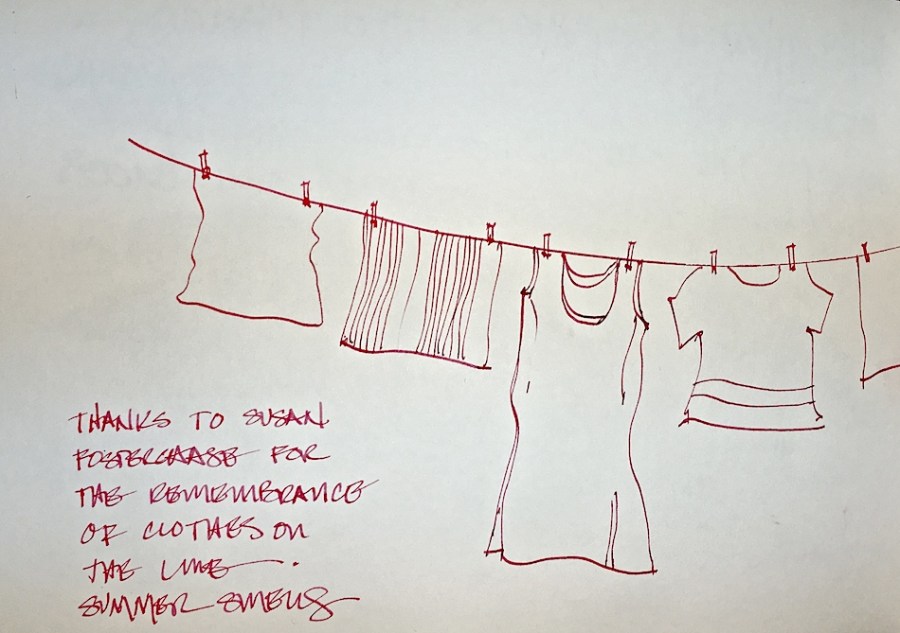 THANKS TO SUSAN
FOSTERCHASE FOR
THE REMEMBRANCE
OF CLOTHES ON
THE LINE.
SUMMER SMELLS